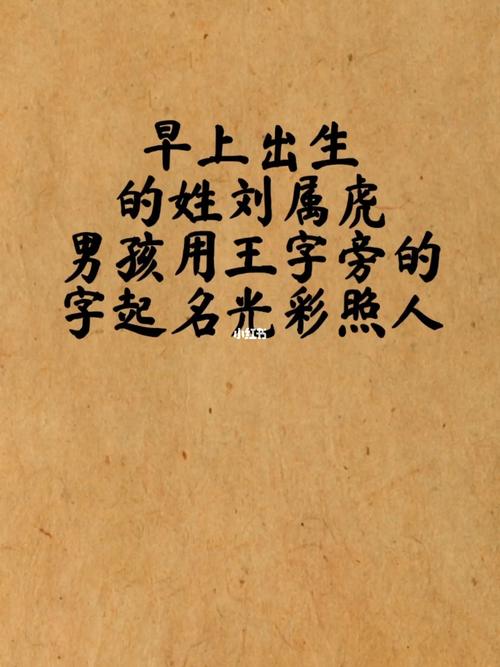 早上出生
的姓刘属虎
男孩用王字旁的
字起名光彩照人
小红书